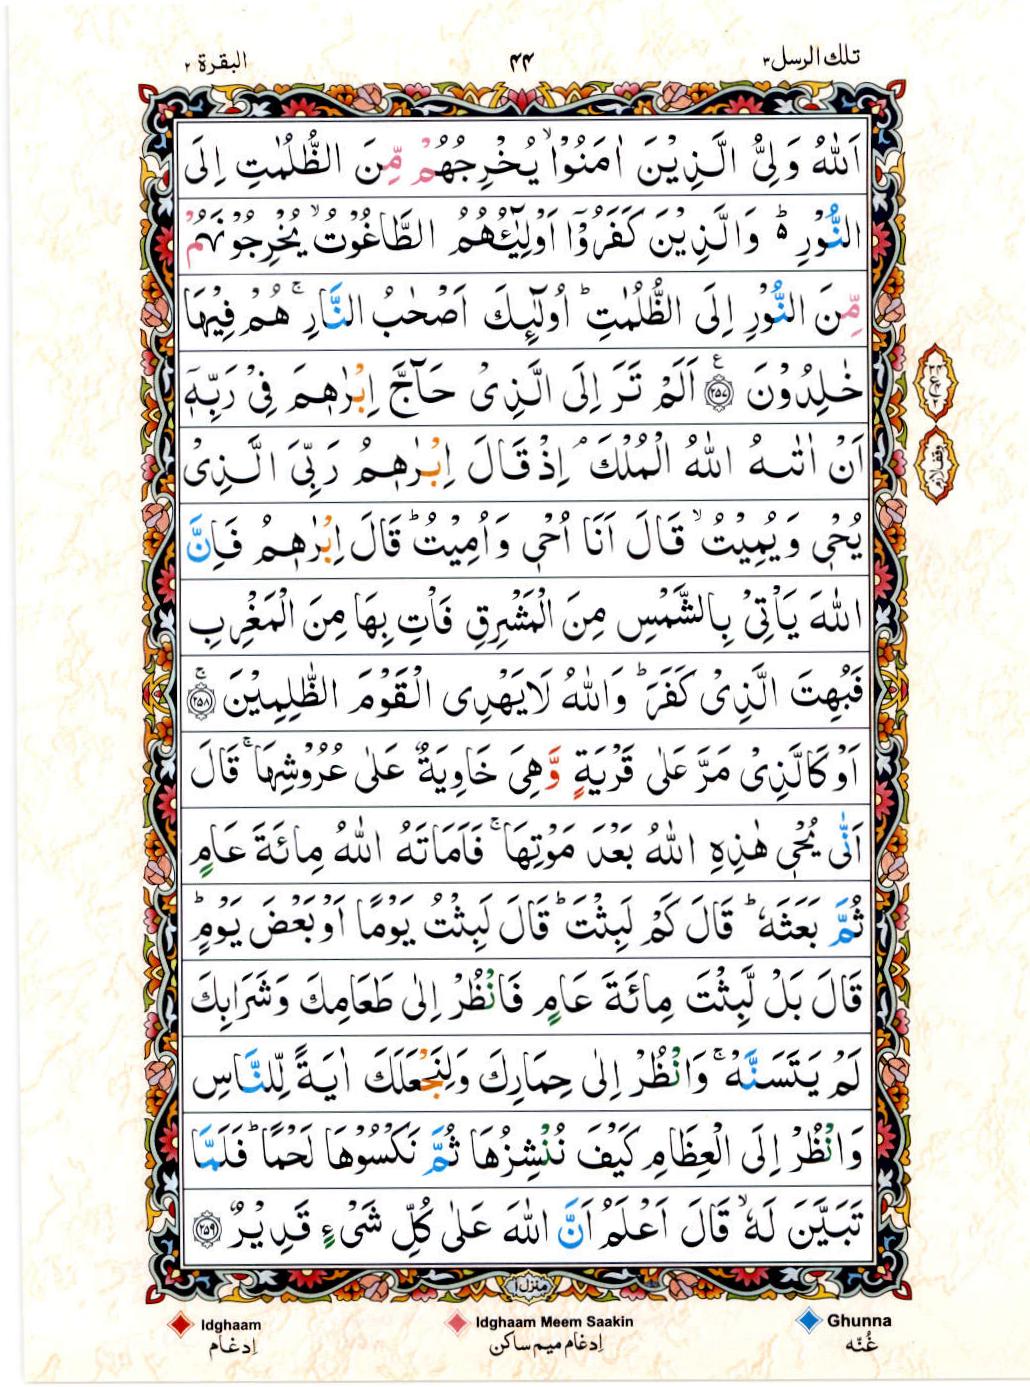 تلك الرسل ٣
٤٤
البقرة ٢
اَللّٰهُ وَلِیُّ الَّذِیْنَ اٰمَنُوْا ۙ یُخْرِجُهُمْ مِّنَ الظُّلُمٰتِ اِلَی
النُّوْرِ ؕ۬ وَالَّذِیْنَ كَفَرُوْۤا اَوْلِیٰٓـُٔهُمُ الطَّاغُوْتُ ۙ یُخْرِجُوْنَهُمْ
مِّنَ النُّوْرِ اِلَی الظُّلُمٰتِ ؕ اُولٰٓىِٕكَ اَصْحٰبُ النَّارِ ۚ هُمْ فِیْهَا
خٰلِدُوْنَ ۟۠ ﴿٢٥٧﴾ اَلَمْ تَرَ اِلَی الَّذِیْ حَآجَّ اِبْرٰهٖمَ فِیْ رَبِّهٖۤ
اَنْ اٰتٰىهُ اللّٰهُ الْمُلْكَ ۘ اِذْ قَالَ اِبْرٰهٖمُ رَبِّیَ الَّذِیْ
یُحْیٖ وَیُمِیْتُ ۙ قَالَ اَنَا اُحْیٖ وَاُمِیْتُ ؕ قَالَ اِبْرٰهٖمُ فَاِنَّ
اللّٰهَ یَاْتِیْ بِالشَّمْسِ مِنَ الْمَشْرِقِ فَاْتِ بِهَا مِنَ الْمَغْرِبِ
فَبُهِتَ الَّذِیْ كَفَرَ ؕ وَاللّٰهُ لَا یَهْدِی الْقَوْمَ الظّٰلِمِیْنَ ۚ ﴿٢٥٨﴾
اَوْ كَالَّذِیْ مَرَّ عَلٰی قَرْیَةٍ وَّهِیَ خَاوِیَةٌ عَلٰی عُرُوْشِهَا ۚ قَالَ
اَنّٰی یُحْیٖ هٰذِهِ اللّٰهُ بَعْدَ مَوْتِهَا ۚ فَاَمَاتَهُ اللّٰهُ مِائَةَ عَامٍ
ثُمَّ بَعَثَهٗ ؕ قَالَ كَمْ لَبِثْتَ ؕ قَالَ لَبِثْتُ یَوْمًا اَوْ بَعْضَ یَوْمٍ ؕ
قَالَ بَلْ لَّبِثْتَ مِائَةَ عَامٍ فَانْظُرْ اِلٰی طَعَامِكَ وَشَرَابِكَ
لَمْ یَتَسَنَّهْ ۚ وَانْظُرْ اِلٰی حِمَارِكَ وَلِنَجْعَلَكَ اٰیَةً لِّلنَّاسِ
وَانْظُرْ اِلَی الْعِظَامِ كَیْفَ نُنْشِزُهَا ثُمَّ نَكْسُوْهَا لَحْمًا ؕ فَلَمَّا
تَبَیَّنَ لَهٗ ۙ قَالَ اَعْلَمُ اَنَّ اللّٰهَ عَلٰی كُلِّ شَیْءٍ قَدِیْرٌ ﴿٢٥٩﴾
وقف لازم
منزل ١
Ghunna
غُنّه
Idghaam Meem Saakin
إدغام ميم ساكن
Idghaam
إدغام